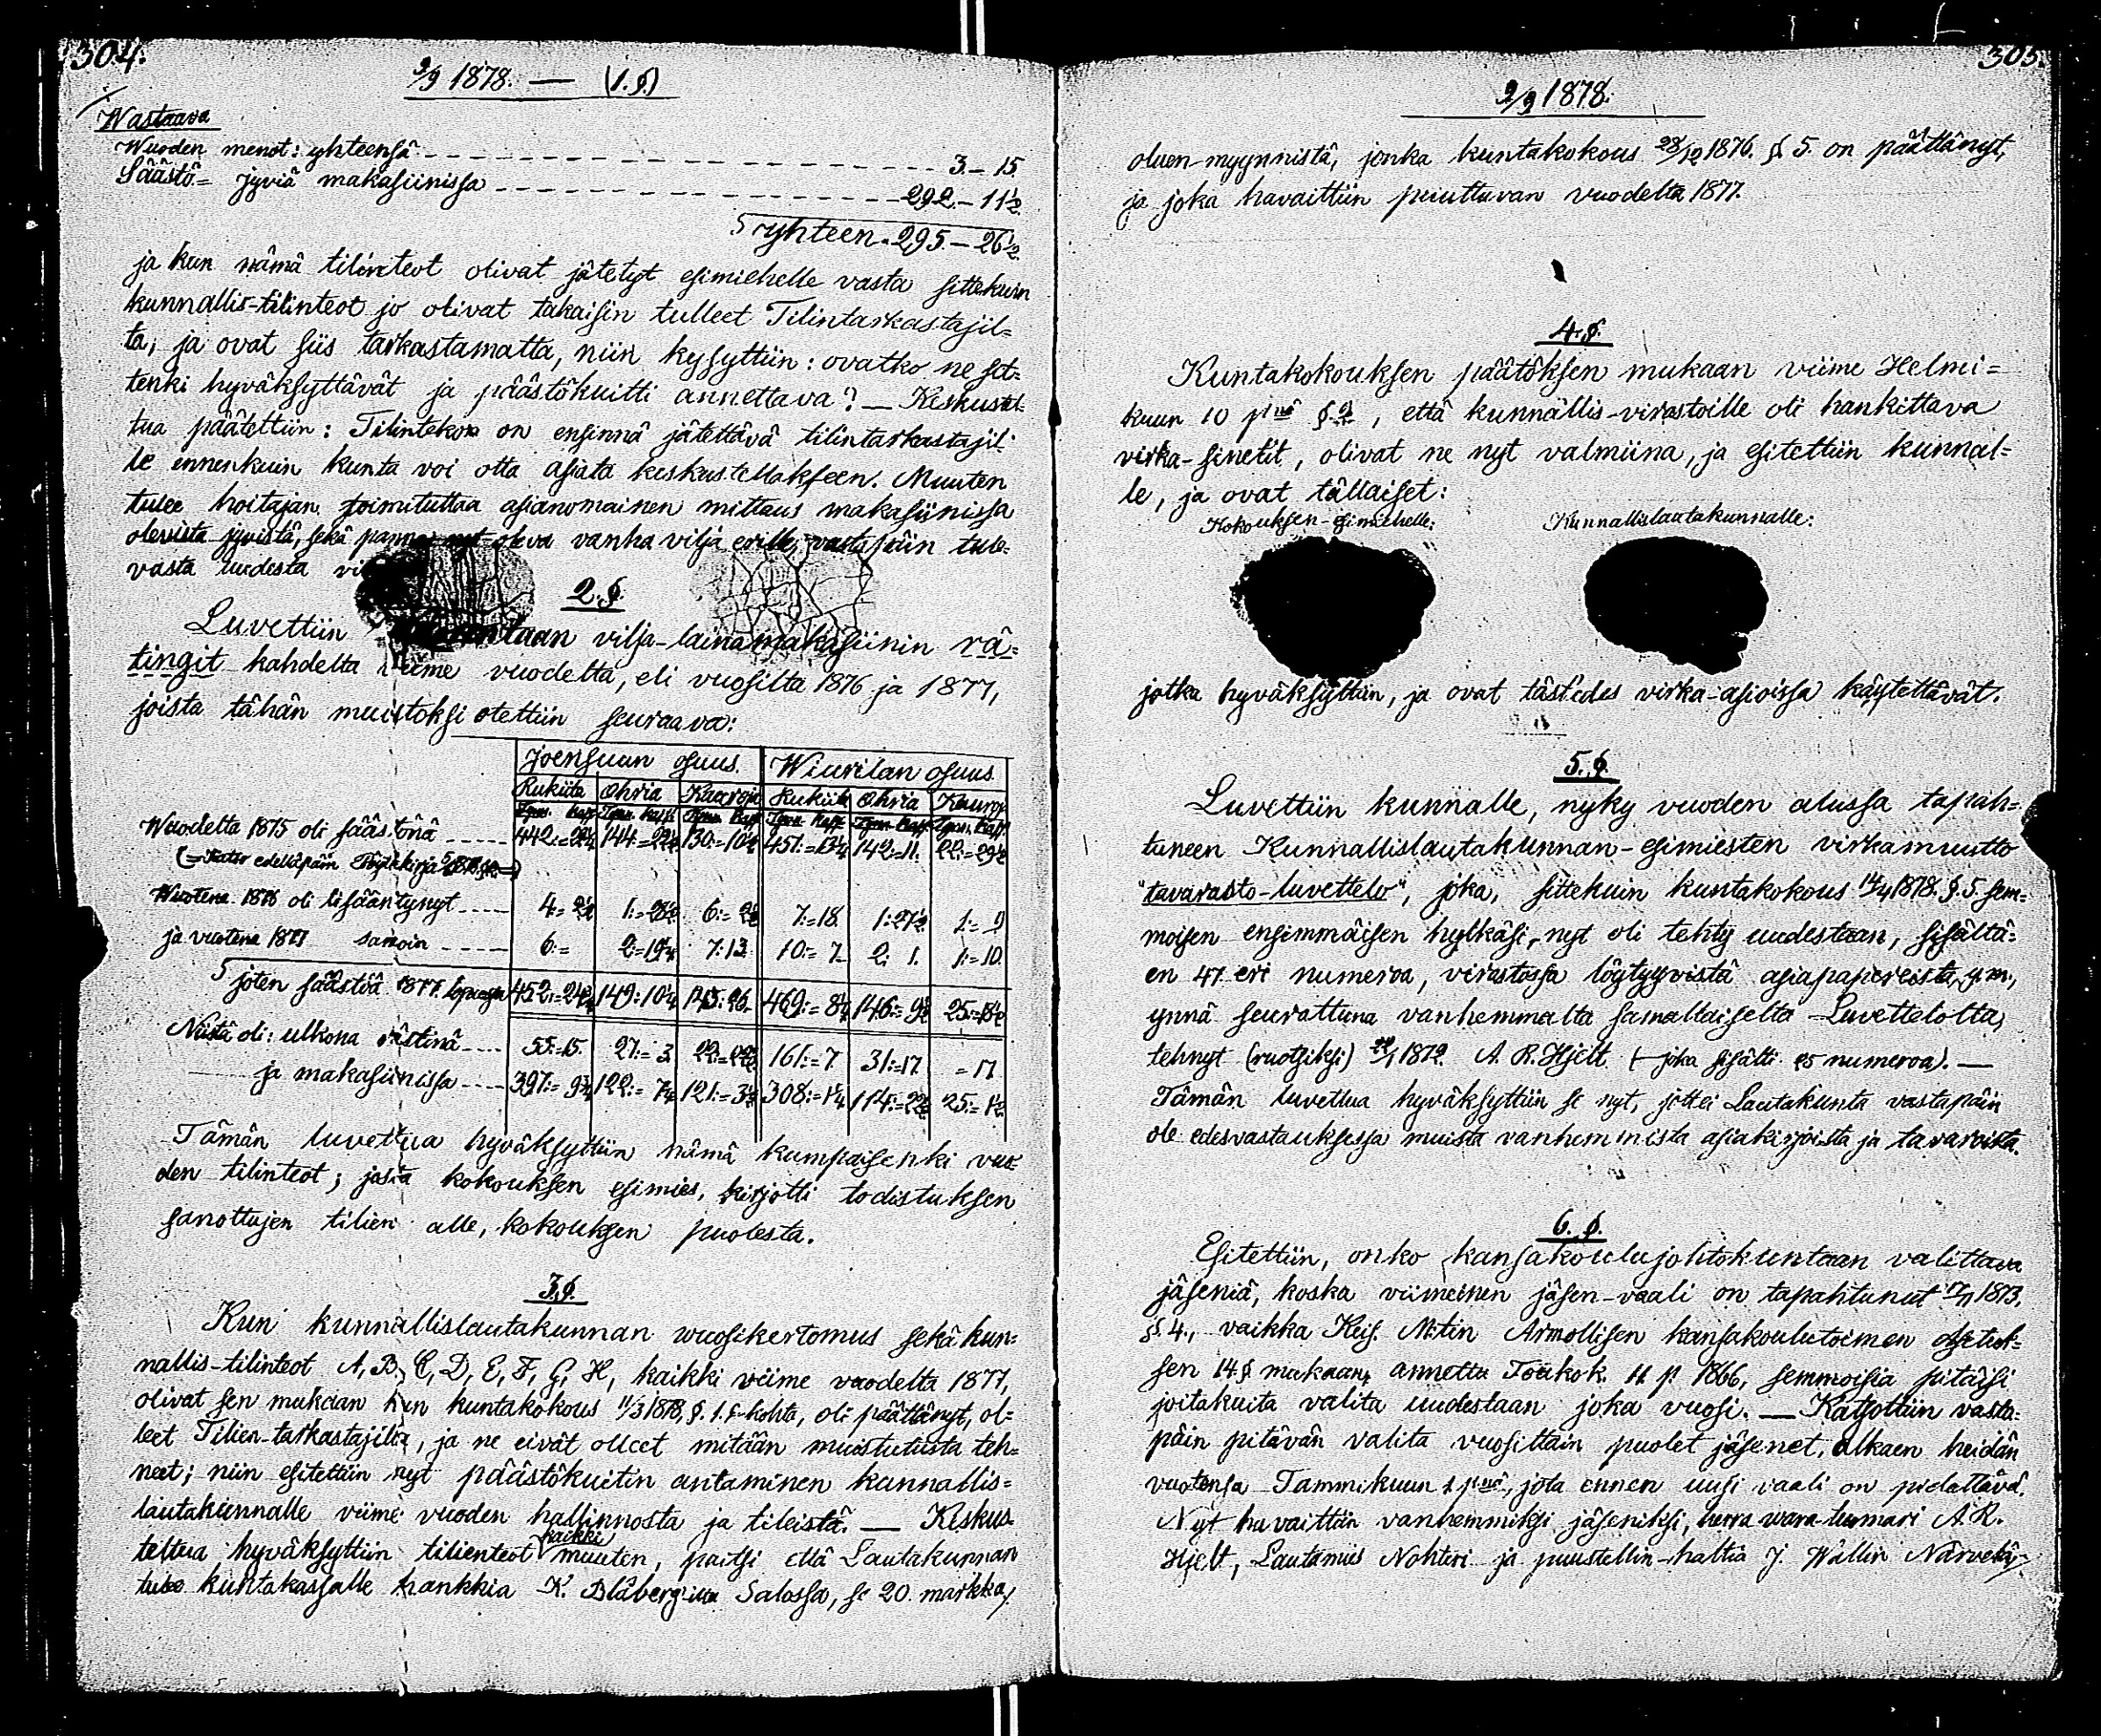 304.
2/9 1878. — (1.§.)
Wastaava
Wuoden menot: yhteensä - - - 3. - 15.
Säästö = jyviä makasiinissa - - - 292. - 11½.
yhteen. 295. - 26½.
ja kun nämä tilinteot olivat jätetyt esimiehelle vasta sittekuin
kunnallis-tilinteot jo olivat takaisin tulleet Tilintarkastajil=
ta, ja ovat siis tarkastamatta, niin kysyttiin: ovatko ne sit=
tenki hyväksyttävät ja päästökuitti annettava? — Keskustel-
tua päätettiin: Tilinteko on ensinnä jätettävä tilintarkastajil=
le ennenkuin kunta voi otta asiata keskustellakseen. Muuten
tulee hoitajan toimituttaa asianomainen mittaus makasiinissa
olevista jyvistä, sekä panna nyt oleva vanha vilja erill. vastapäin tule=
vasta uudesta
2.§.
Luvettiin vilja-lainamakasiinin rä=
tingit kahdelta viime vuodelta, eli vuosilta 1876 ja 1877,
joista tähän muistoksi otettiin seuraava:
Joensuun osuus. Wiurilan osuus
Rukiita Ohria Kauroja Rukiita Ohria Kauroja
Tynn. Kapp. Tynn. Kapp. Tynn. Kapp. Tynn. Kapp. Tynn. Kapp. Tynn. Kapp.
Wuodelta 1875 oli säästönä - - - 142:=11.
Wuotena 1876 oli lisääntynyt - - - 7:=18. 1:27½ 1:=9
ja vuotena 1877 samoin - - - 6:= 2:=19¼ 7:13. 10:=7. 2: 1. 1:=10.
joten säästöä 1877 lopussa 452:=24¾ 149:10¼ 145:26. 469:=8¼ 146:=9½ 25:=18½
Niistä oli: ulkona rästinä - - - 55:=15. 27:=3. 161:=7 31:=17 =17
ja makasiinissa - - - 397:=9¾ 122:=7¼ 121:=3½ 308:=1¼ 114:=22½ 25:=1½
Tämän luvettua hyväksyttiin nämä kumpaisenki vuo=
den tilinteot; josta kokouksen esimies, kirjotti todistuksen
sanottujen tilien alle, kokouksen puolesta.
3.§.
Kun kunnallislautakunnan wuosikertomus sekä kun=
nallis-tilinteot A, B, C, D, E, F, G, H, kaikki viime vuodelta 1877,
olivat sen mukaan kun kuntakokous 11/3 1878, §. 1. kohta, oli päättänyt, ol=
leet Tilien-tarkastajilla, ja ne eivät olleet mitään muistutusta teh=
neet; niin esitettiin nyt päästökuitin antaminen kunnallis=
lautakunnalle viime vuoden hallinnosta ja tileistä. — Keskus-
teltua hyväksyttiin tilienteot kaikki muuten, paitsi että Lautakunnan
tulee kuntakassalle hankkia K. Blåberg'illa Salossa, se 20. markkaa
305.
2/9 1878.
oluen-myynnistä, jonka kuntakokous 28/12 1876. § 5. on päättänyt,
ja joka havaittiin puuttuvan vuodelta 1877.
4.§.
Kuntakokouksen päätöksen mukaan viime Helmi=
kuun 10 p:nä §., että kunnallis-virastoille oli hankittava
virka-sinetit, olivat ne nyt valmiina, ja esitettiin kunnal=
le, ja ovat tällaiset:
Kokouksen-esimiehelle: Kunnallislautakunnalle:
jotka hyväksyttiin, ja ovat tästedes virka-asioissa käytettävät.
5.§.
Luvettiin kunnalle, nyky vuoden alussa tapah=
tuneen Kunnallislautakunnan-esimiesten virkamuutto
"tavarasto-luvettelo", joka, sittekuin kuntakokous 14/4 1878. §. 5. sem=
moisen ensimmäisen hylkäsi, nyt oli tehty uudestaan, sisältä=
en 47 eri numeroa, virastossa löytyvistä asiapapereista y.m.,
ynnä seurattuna vanhemmalta samallaiselta Luvettelolta,
tehnyt (ruotsiksi) 1872. A. R. Hjelt (joka sisälti 25 numeroa). —
Tämän luvettua hyväksyttiin se nyt, jottei Lautakunta vastapäin
ole edesvastauksessa muista vanhemmista asiakirjoista ja tavaroista.
6.§.
Esitettiin, onko kansakoulujohtokuntaan valittava
jäseniä, koska viimeinen jäsen-vaali on tapahtunut 1873,
§. 4., vaikka Keis. M:tin Armollisen kansakoulutoimen asetuk=
sen 14.§ mukaan, annettu Toukok. 11 p. 1866, semmoisia pitäisi
joitakuita valita uudestaan joka vuosi. — Katsottiin vasta=
päin pitävän valita vuosittain puolet jäsenet, alkaen heidän
vuotensa Tammikuun 1 p:nä, jota ennen uusi vaali on pidettävä.
Nyt havaittiin vanhemmiksi jäseniksi, herra wara-tuomari A. R.
Hjelt, Lautamies Nohteri ja puustellin-haltia J. Wallin Närvelä